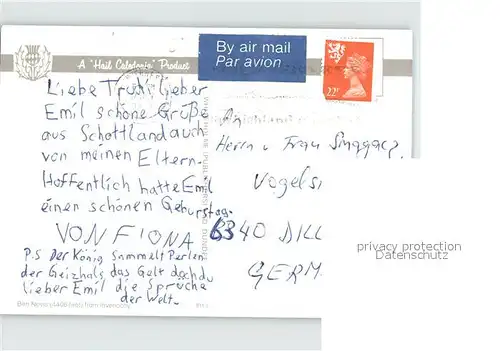 A "Hail Caledonia" Product
By air mail
Par avion
22p
Liebe Trudi, lieber
Emil schöne Grüße
aus Schottland auch
von meinen Eltern.
Hoffentlich hatte Emil
einen schönen Geburtstag.
VON FIONA
P.S Der König sammelt Perlen
der Geizhals das Gelt doch du
lieber Emil die Sprüche
der Welt.
Ben Nevis (4406 feet) from Inverlochy
An
Herrn u Frau
Vogels
6340 DILL
GERM
privacy protection
Datenschutz